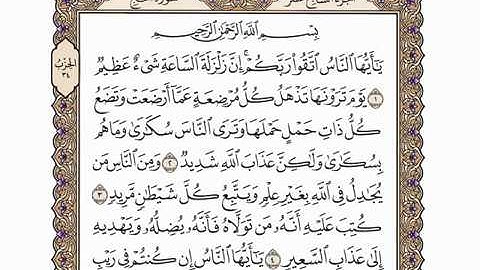 الجزء السابع عشر
سورة الحج
بِسْمِ ٱللَّهِ ٱلرَّحْمَٰنِ ٱلرَّحِيمِ
يَٰٓأَيُّهَا ٱلنَّاسُ ٱتَّقُوا۟ رَبَّكُمْ ۚ إِنَّ زَلْزَلَةَ ٱلسَّاعَةِ شَىْءٌ عَظِيمٌ
١ يَوْمَ تَرَوْنَهَا تَذْهَلُ كُلُّ مُرْضِعَةٍ عَمَّآ أَرْضَعَتْ وَتَضَعُ
كُلُّ ذَاتِ حَمْلٍ حَمْلَهَا وَتَرَى ٱلنَّاسَ سُكَٰرَىٰ وَمَا هُم
بِسُكَٰرَىٰ وَلَٰكِنَّ عَذَابَ ٱللَّهِ شَدِيدٌ ٢ وَمِنَ ٱلنَّاسِ مَن
يُجَٰدِلُ فِى ٱللَّهِ بِغَيْرِ عِلْمٍ وَيَتَّبِعُ كُلَّ شَيْطَٰنٍ مَّرِيدٍ ٣
كُتِبَ عَلَيْهِ أَنَّهُۥ مَن تَوَلَّاهُ فَأَنَّهُۥ يُضِلُّهُۥ وَيَهْدِيهِ
إِلَىٰ عَذَابِ ٱلسَّعِيرِ ٤ يَٰٓأَيُّهَا ٱلنَّاسُ إِن كُنتُمْ فِى رَيْبٍ
الحزب
٣٤